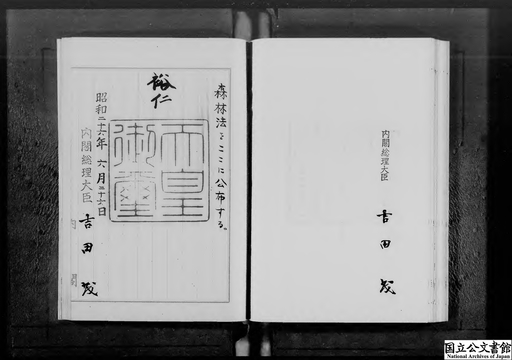 森林法をここに公布する。
裕仁
天皇
御璽
昭和二十六年六月二十六日
内閣総理大臣 吉田茂
内閣
内閣総理大臣
吉田茂
国立公文書館
National Archives of Japan